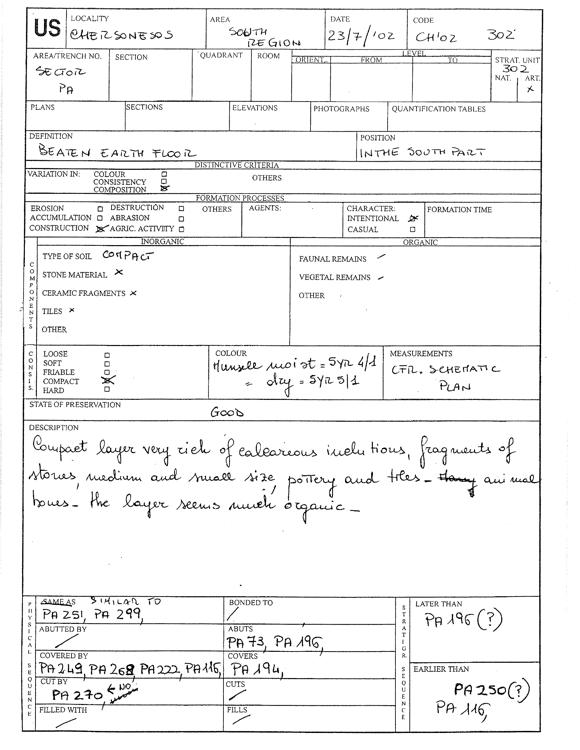 US LOCALITY AREA DATE CODE
CHERSONESOS SOUTH REGION 23/7/'02 CH'02 302
AREA/TRENCH NO. SECTION QUADRANT ROOM LEVEL STRAT. UNIT
ORIENT. FROM TO
SECTOR PA 302
NAT. ART.
x
PLANS SECTIONS ELEVATIONS PHOTOGRAPHS QUANTIFICATION TABLES
DEFINITION POSITION
BEATEN EARTH FLOOR IN THE SOUTH PART
DISTINCTIVE CRITERIA
VARIATION IN: COLOUR □ OTHERS
CONSISTENCY □
COMPOSITION ☒
FORMATION PROCESSES
EROSION □ DESTRUCTION □ OTHERS AGENTS: CHARACTER: FORMATION TIME
ACCUMULATION □ ABRASION □ INTENTIONAL ☒
CONSTRUCTION ☒ AGRIC. ACTIVITY □ CASUAL □
INORGANIC ORGANIC
COMPONENTS
TYPE OF SOIL COMPACT
STONE MATERIAL x
CERAMIC FRAGMENTS x
TILES x
OTHER
FAUNAL REMAINS /
VEGETAL REMAINS /
OTHER
CONSIS.
LOOSE □
SOFT □
FRIABLE □
COMPACT ☒
HARD □
COLOUR
Munsell moist = 5YR 4/1
= dry = 5YR 5/1
MEASUREMENTS
CFR. SCHEMATIC
PLAN
STATE OF PRESERVATION
GOOD
DESCRIPTION
Compact layer very rich of calcareous inclutions, fragments of
stones, medium and small size, pottery and tiles - animal
bones - the layer seems much organic -
PHYSICAL SEQUENCE
SAME AS SIMILAR TO
PA 251, PA 299,
BONDED TO
/
ABUTTED BY
/
ABUTS
PA 73, PA 196,
COVERED BY
PA 249, PA 268, PA 222, PA 115,
COVERS
PA 194,
CUT BY
PA 270 ← NO
CUTS
/
FILLED WITH
/
FILLS
/
STRATIGR. SEQUENCE
LATER THAN
PA 196 (?)
EARLIER THAN
PA 250 (?)
PA 116,